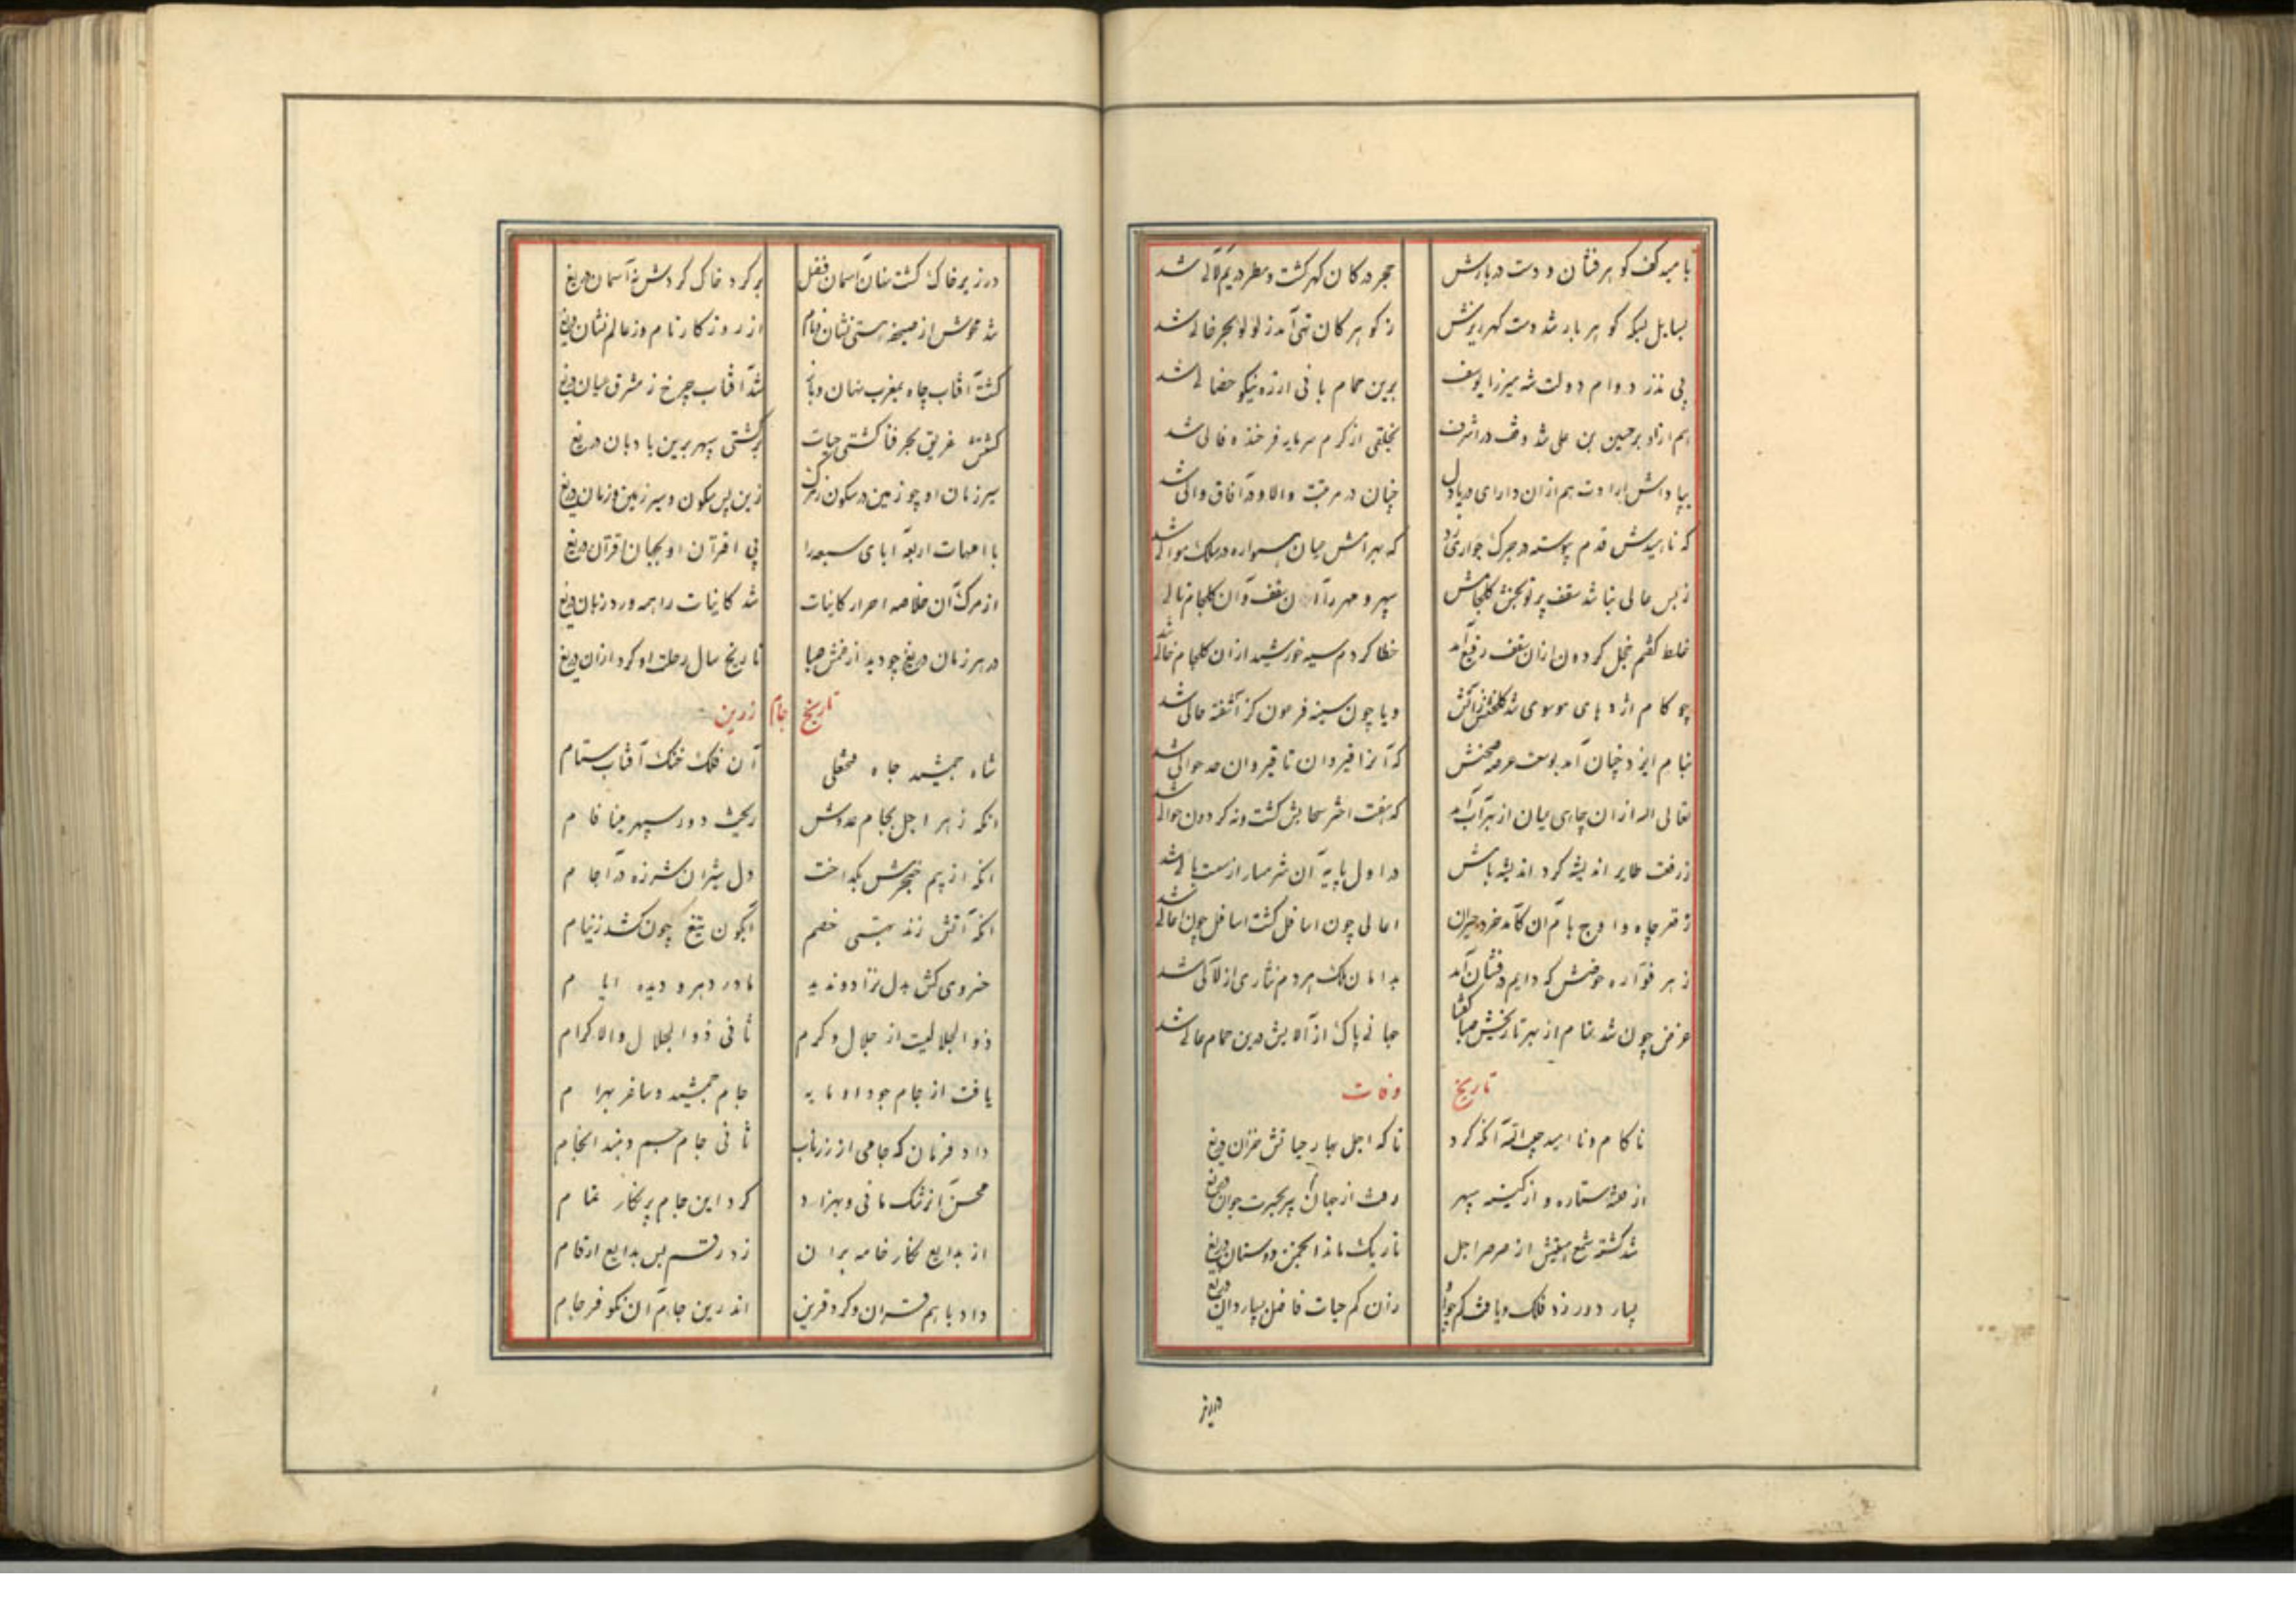 بامید کف کوهر فشان و دست دربارش حجر در کان کهر کشت و مطر در یم لآلی شد
بسایل لیکه کوهر بار شد دست کهر ریزش ز کوهر کان تهی آمد ز لولو بحر خالی شد
پی نذر دوام دولت شه میرزا یوسف برین حمام بانی ارزه نیکو خصالی شد
هم ازاد بر حسین بن علی شد وقف در اشرف بخلقی از کرم سرمایه فرخنده فالی شد
بپاداش ارادت هم از ان دارای دریادل چنان در مرتبت والا و در آفاق والی شد
که ناهیدش قدم پیوسته در جرک جواری زد که بهرامش میان همواره در سلک موالی شد
ز بس عالی بنا شد سقف پرتوبخش کلجامش سپهر و مهر را آن سقف و آن کلجام تالی
غلط کفتم خجل کردون ازان سقف رفیع آمد خطا کردم سیه خورشید ازان کلجام خالی شد
چو کام اژدهای موسوی شد کلخنش ز آتش ویا چون سینه فرعون کز آشفته حالی شد
بنام ایزد چنان آمد بوسعت عرصه صحنش که آنرا قیروان تا قیروان حد حوالی شد
تعالی اله ازان چاهی میان از بهر آب آمد که هفت اختر سحابش کشت و نه کردون حوالی شد
ز رفعت طایر اندیشه کرد اندیشه بامش در اول پایه آن شرمسار از سست بالی شد
ز قعر چاه و اوج بام آن کامد خرد حیران اعالی چون اسافل کشت اسافل چون اعالی شد
ز هر فواره حوضش که دایم در فشان آمد بدامان ملک هر دم نثاری از لآلی شد
غرض چون شد تمام از بهر تاریخش صبا کفتا جهانی پاک از آلایش درین حمام عالی شد
تاریخ وفات
ناکام و ناامید حبیب الله آنکه کرد ناکه اجل بهار حیاتش خزان دریغ
از فتنه ستاره و از کینه سپهر رفت از جهان پیر بحسرت جوان دریغ
شد کشته شمع عیشش از صرصر اجل تاریک ماند انجمن دوستان دریغ
بسیار دور زد فلک و یافت کم جواد زان کم حیات فاضل بسیاردان دریغ
در زیر
در زیر خاک کشت نهان آسمان فضل بر کرد خاک کردش نه آسمان دریغ
شد محوش از صحیفه هستی نشان و نام از روزکار نام و ز عالم نشان دریغ
کشت آفتاب جاه بمغرب نهان و باز شد آفتاب چرخ ز مشرق عیان دریغ
کشتش غریق بحر فنا کشتی حیات بر کشتی سپهر برین بادبان دریغ
سیر زمان او چو زمین در سکون ز مرک زین پس سکون و سیر زمین و زمان دریغ
با امهات اربعه آبای سبعه را پی اقتران او بجهان اقتران دریغ
از مرک آن خلاصه احرار کاینات شد کاینات را همه ورد زبان دریغ
در هر زمان دریغ چو دید از غمش صبا تاریخ سال رحلت او کرد ازان دریغ
تاریخ جام زرین
شاه جمشید جاه فتحعلی آن فلک خنک آفتاب ستام
انکه زهر اجل بجام عدوش ریخت دور سپهر مینا فام
انکه از بیم خنجرش بکداخت دل شیران شرزه در آجام
انکه آتش زند بهستی خصم آبکون تیغ چون کشد ز نیام
خسروی کش بدل نزاد و ندید مادر دهر و دیده ایام
ذوالجلالیست از جلال و کرم ثانی ذوالجلال والاکرام
یافت از جام جود او مایه جام جمشید و ساغر بهرام
داد فرمان که جامی از زر ناب ثانی جام جم دهند انجام
محسن آنرشک مانی و بهزاد کرد این جام پرنکار تمام
از بدایع نکار خامه بران زد رقم بس بدایع ارقام
داد باهم قران و کرد قرین اندرین جام آن نکو فرجام